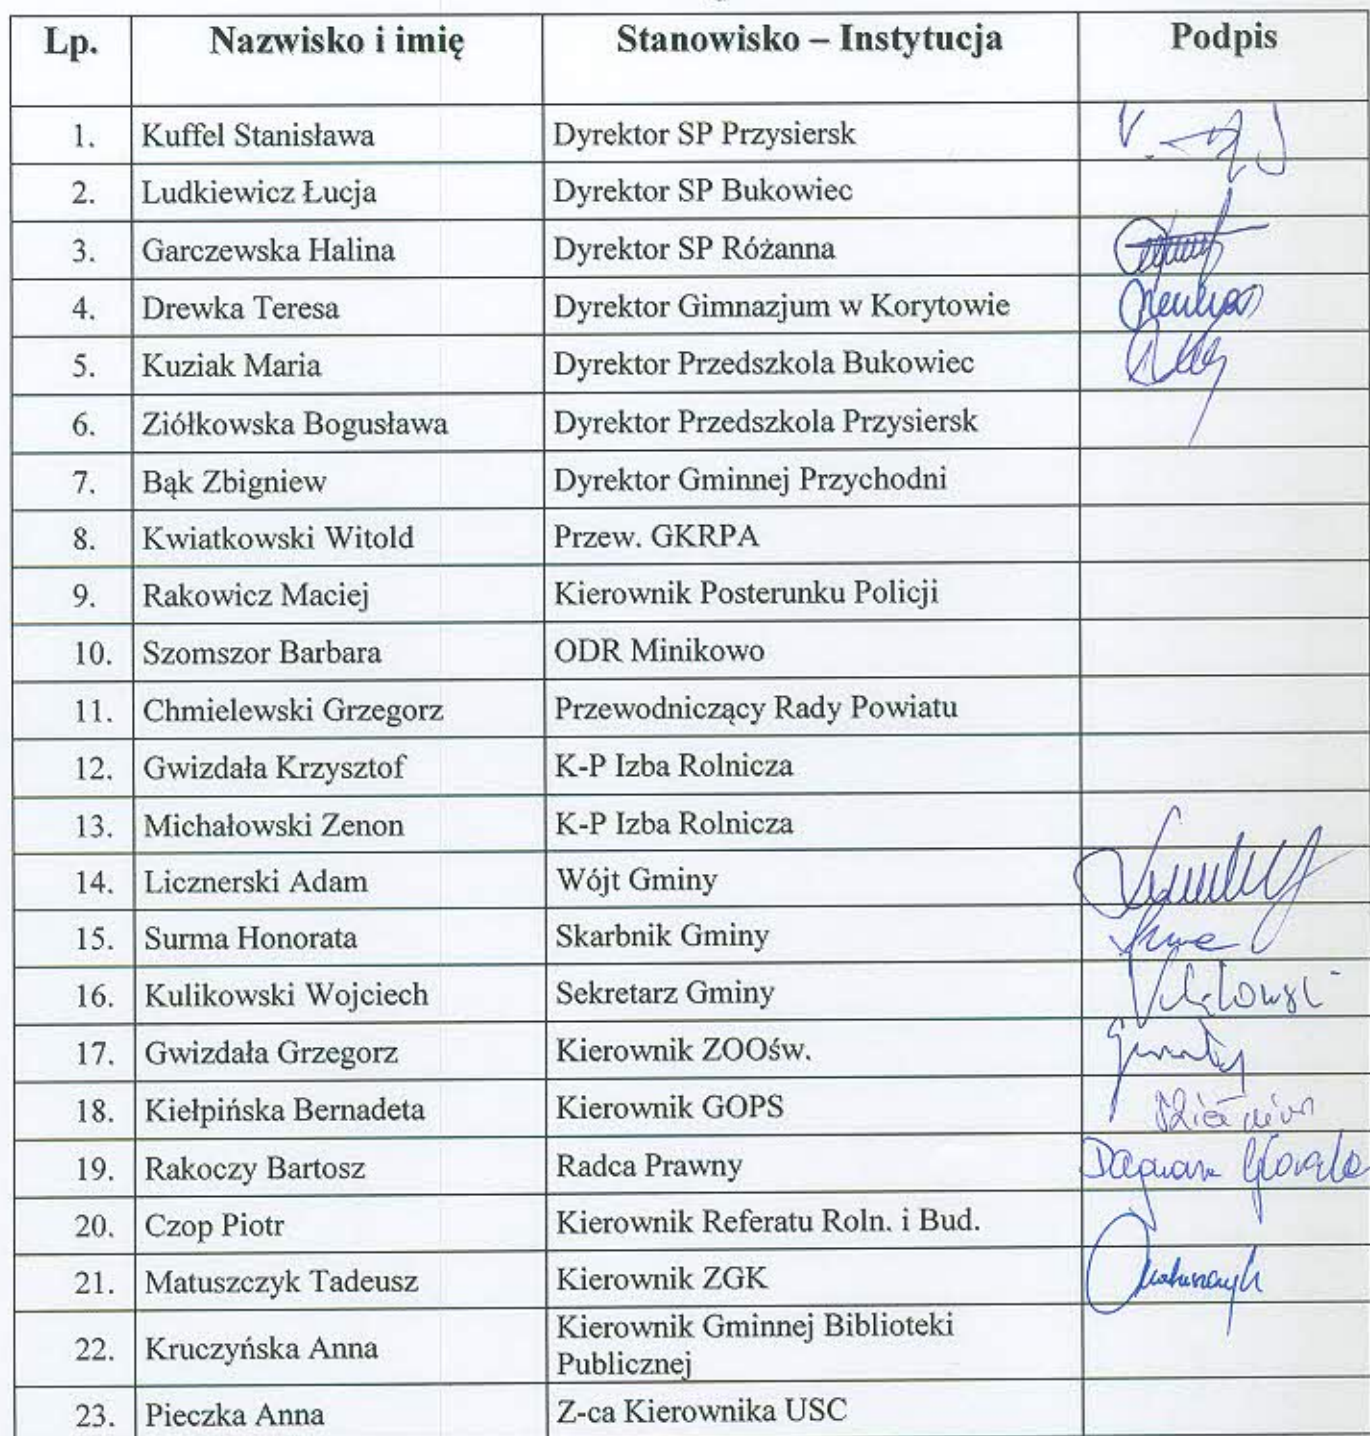 Lp. Nazwisko i imię Stanowisko – Instytucja Podpis
1. Kuffel Stanisława Dyrektor SP Przysiersk
2. Ludkiewicz Łucja Dyrektor SP Bukowiec
3. Garczewska Halina Dyrektor SP Różanna
4. Drewka Teresa Dyrektor Gimnazjum w Korytowie
5. Kuziak Maria Dyrektor Przedszkola Bukowiec
6. Ziółkowska Bogusława Dyrektor Przedszkola Przysiersk
7. Bąk Zbigniew Dyrektor Gminnej Przychodni
8. Kwiatkowski Witold Przew. GKRPA
9. Rakowicz Maciej Kierownik Posterunku Policji
10. Szomszor Barbara ODR Minikowo
11. Chmielewski Grzegorz Przewodniczący Rady Powiatu
12. Gwizdała Krzysztof K-P Izba Rolnicza
13. Michałowski Zenon K-P Izba Rolnicza
14. Licznerski Adam Wójt Gminy
15. Surma Honorata Skarbnik Gminy
16. Kulikowski Wojciech Sekretarz Gminy
17. Gwizdała Grzegorz Kierownik ZOOśw.
18. Kiełpińska Bernadeta Kierownik GOPS
19. Rakoczy Bartosz Radca Prawny
20. Czop Piotr Kierownik Referatu Roln. i Bud.
21. Matuszczyk Tadeusz Kierownik ZGK
22. Kruczyńska Anna Kierownik Gminnej Biblioteki
Publicznej
23. Pieczka Anna Z-ca Kierownika USC